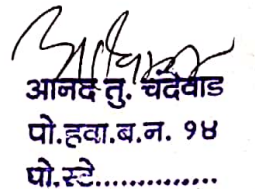 आनंद तु. चंदेवाड
पो.हवा.ब.न. १४
पो.स्टे...............